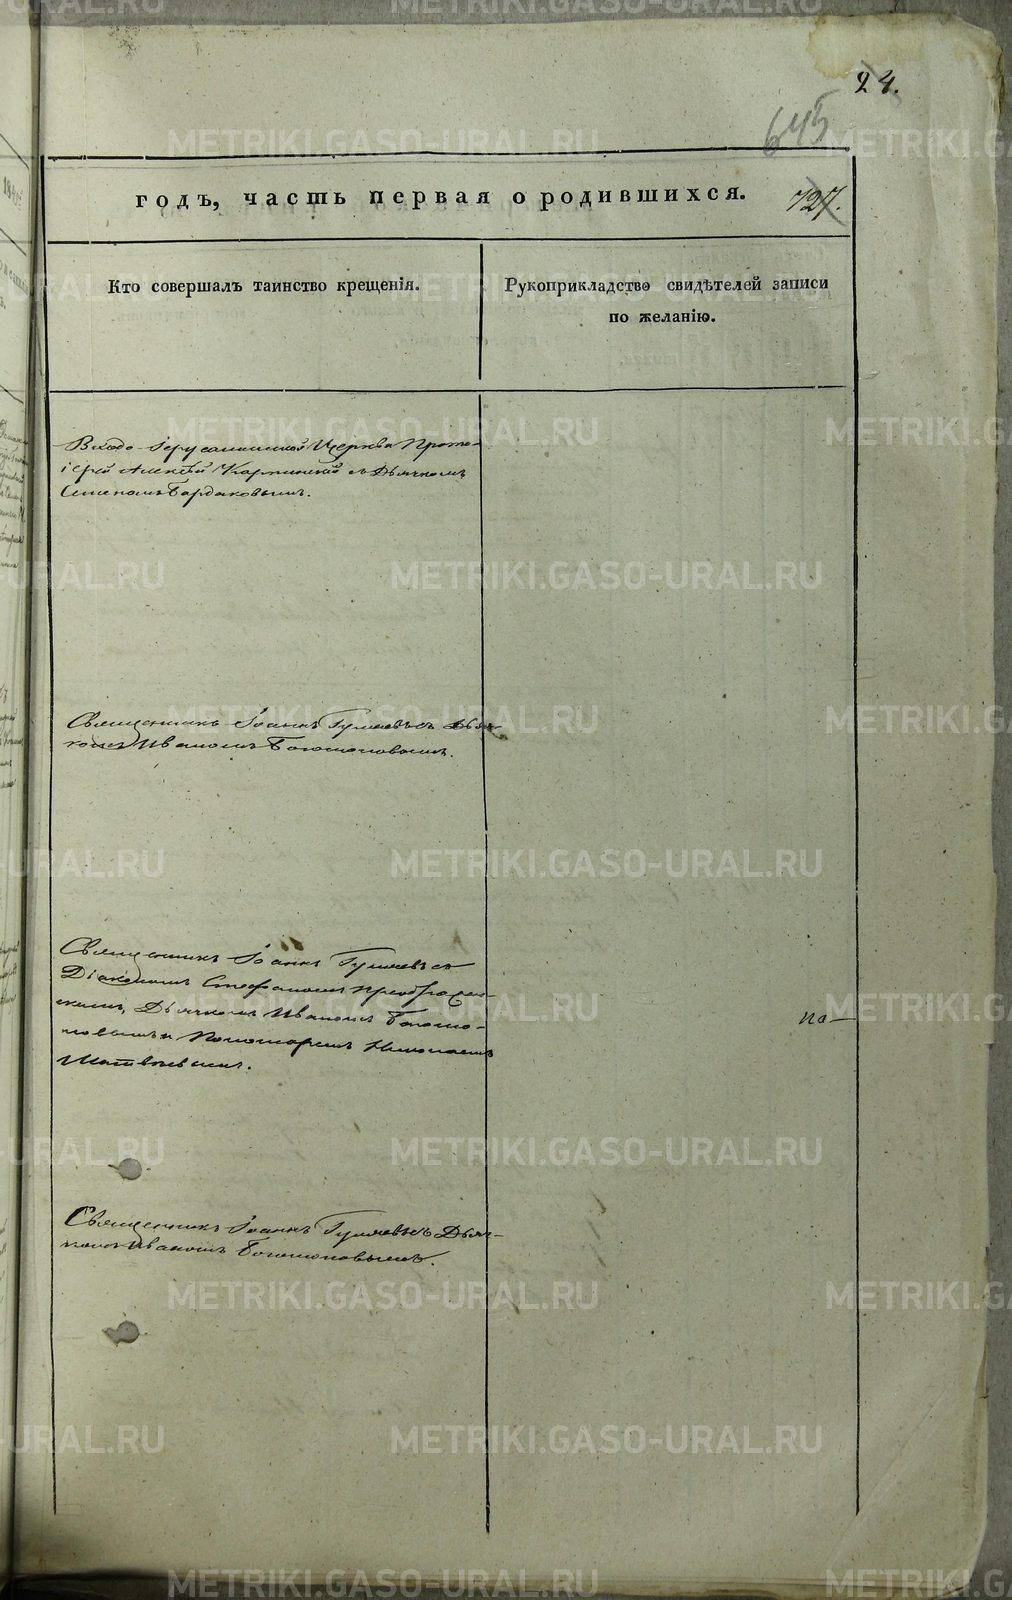 24.
645
годъ, часть первая о родившихся. 727.
Кто совершалъ таинство крещенія.
Рукоприкладство свидѣтелей записи
по желанію.
Входо Іерусалимской Церкви Прото-
іерей Алексѣй Карпинскій съ Дьячкомъ
Стефаномъ Бардаковымъ.
Священникъ Іоаннъ Гуляевъ съ Дьяч-
комъ Иваномъ Богомоловымъ.
Священникъ Іоаннъ Гуляевъ съ
Діакономъ Стефаномъ Преображен-
скимъ, Дьячкомъ Иваномъ Богомо-
ловымъ и Пономаремъ Николаемъ
Матвѣевымъ.
по —
Священникъ Іоаннъ Гуляевъ съ Дьяч-
комъ Иваномъ Богомоловымъ.
METRIKI.GASO-URAL.RU